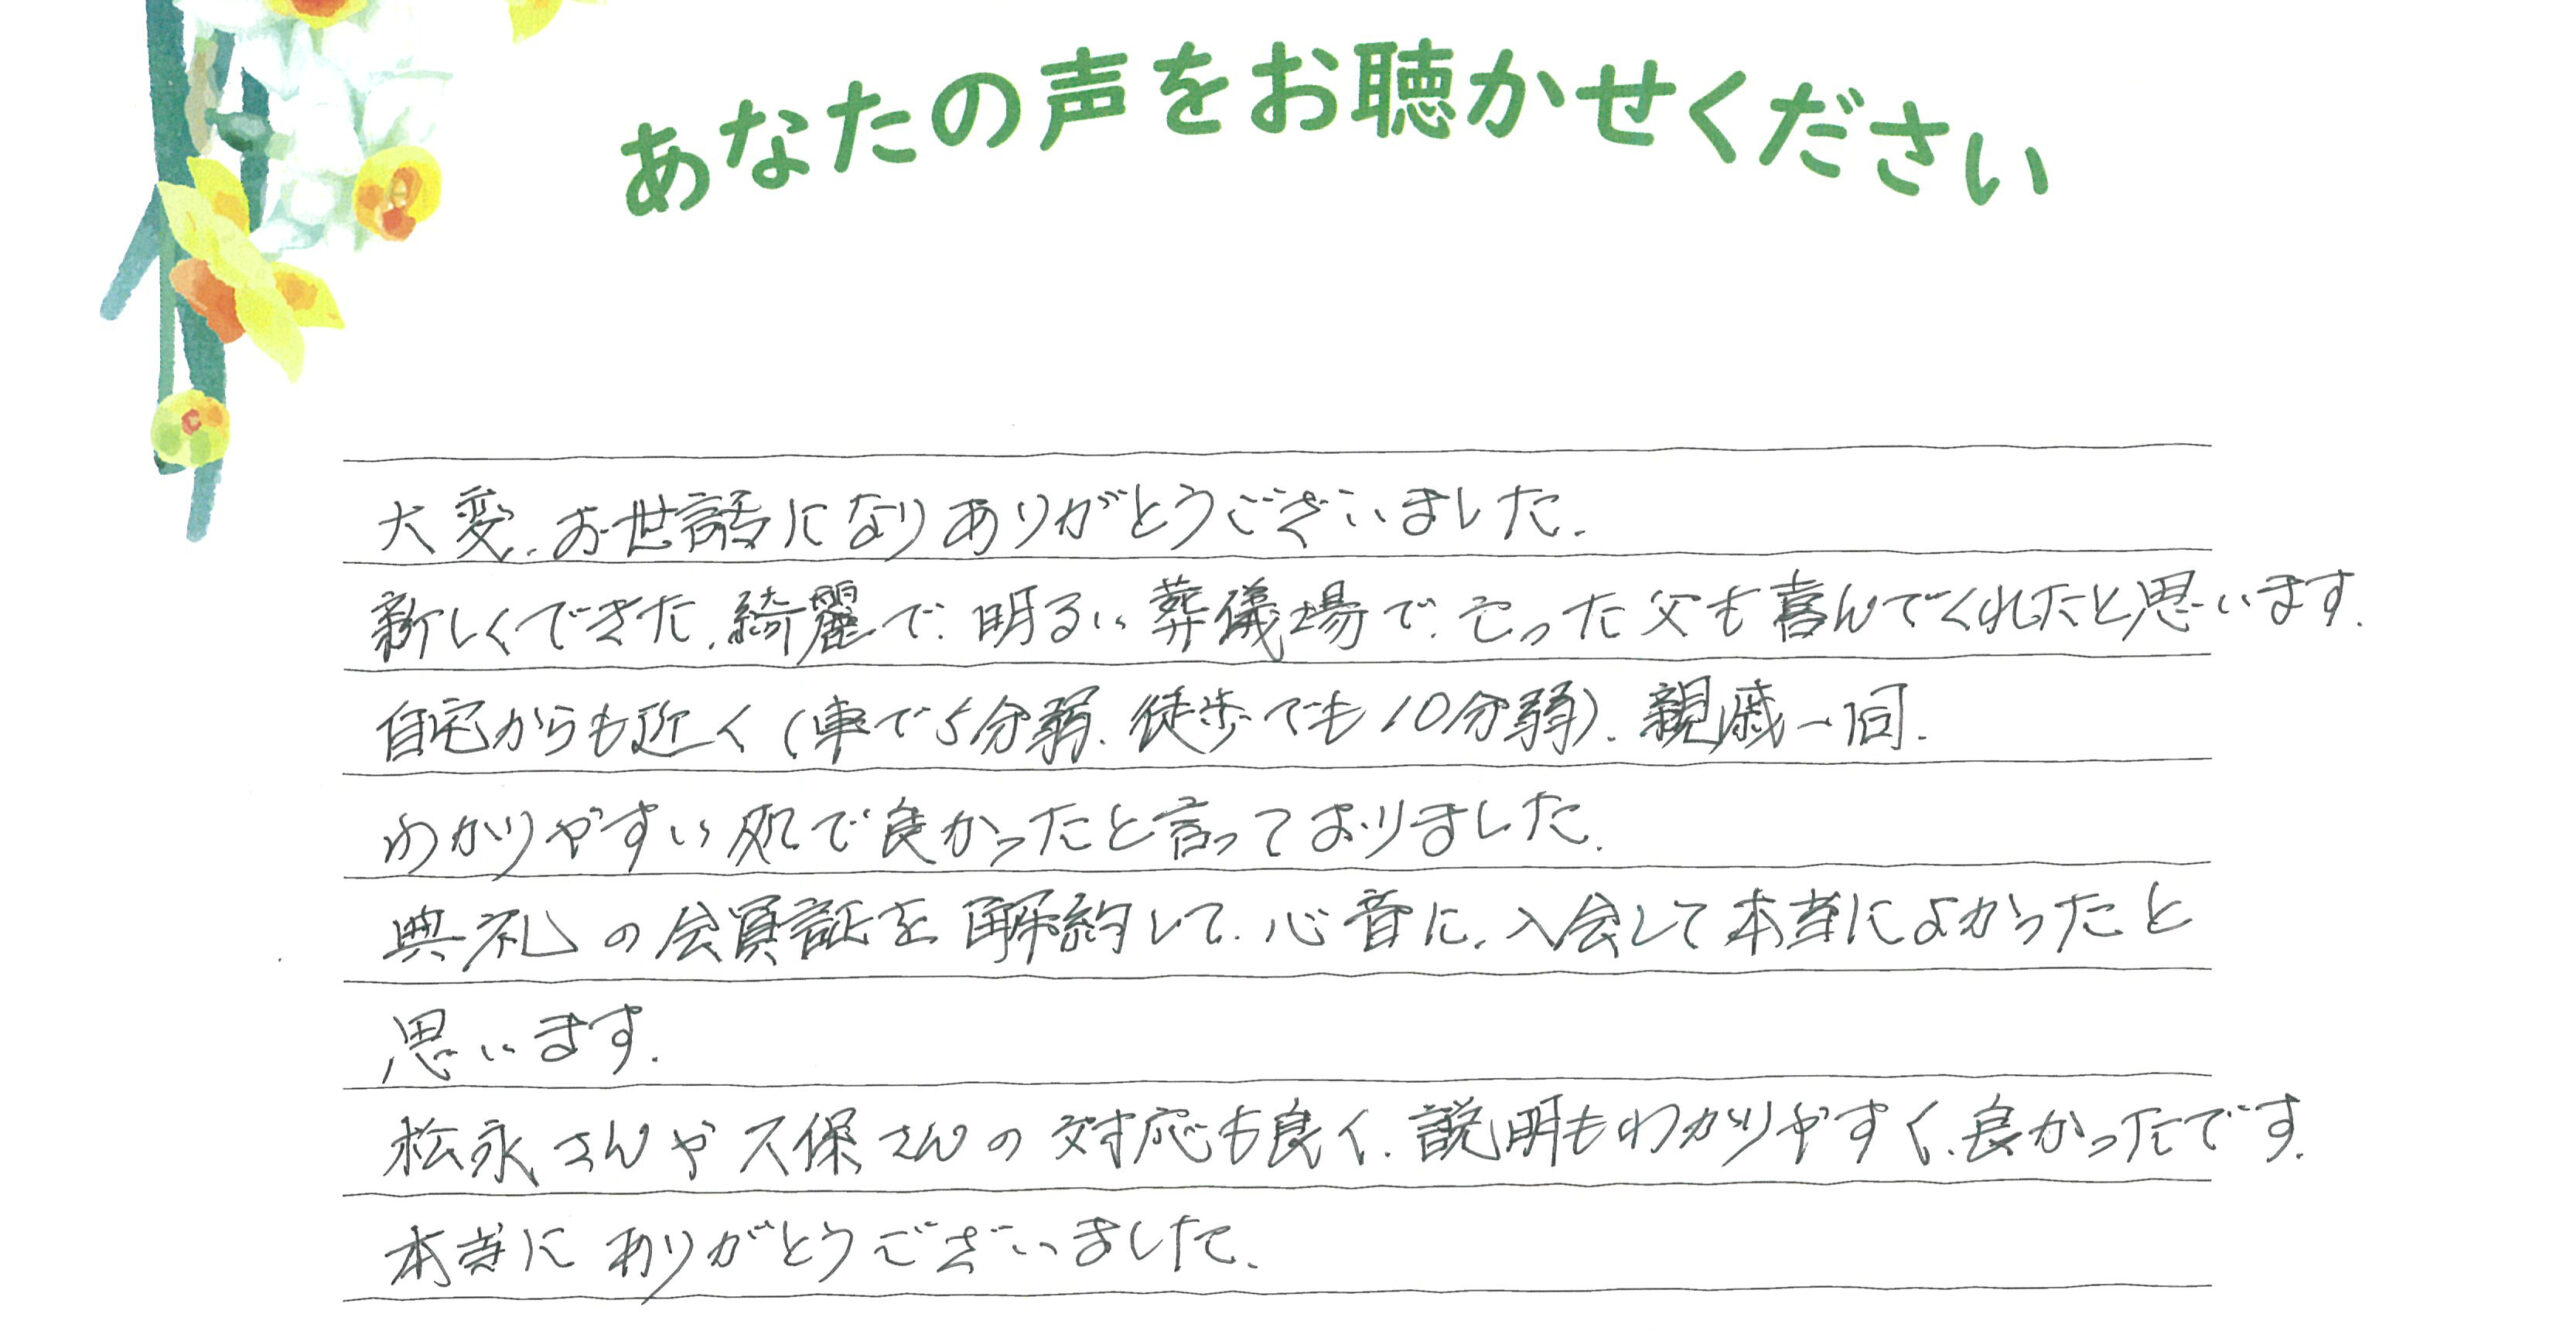 あなたの声をお聴かせください
大変、お世話になりありがとうございました。
新しくできた、綺麗で、明るい葬儀場で、亡った父も喜んでくれたと思います。
自宅からも近く(車で5分弱、徒歩でも10分弱)、親戚一同、
わかりやすい処で良かったと言っておりました。
典礼の会員証を解約して、心音に、入会して本当によかったと
思います。
松永さんや久保さんの対応も良く、説明もわかりやすく、良かったです。
本当にありがとうございました。